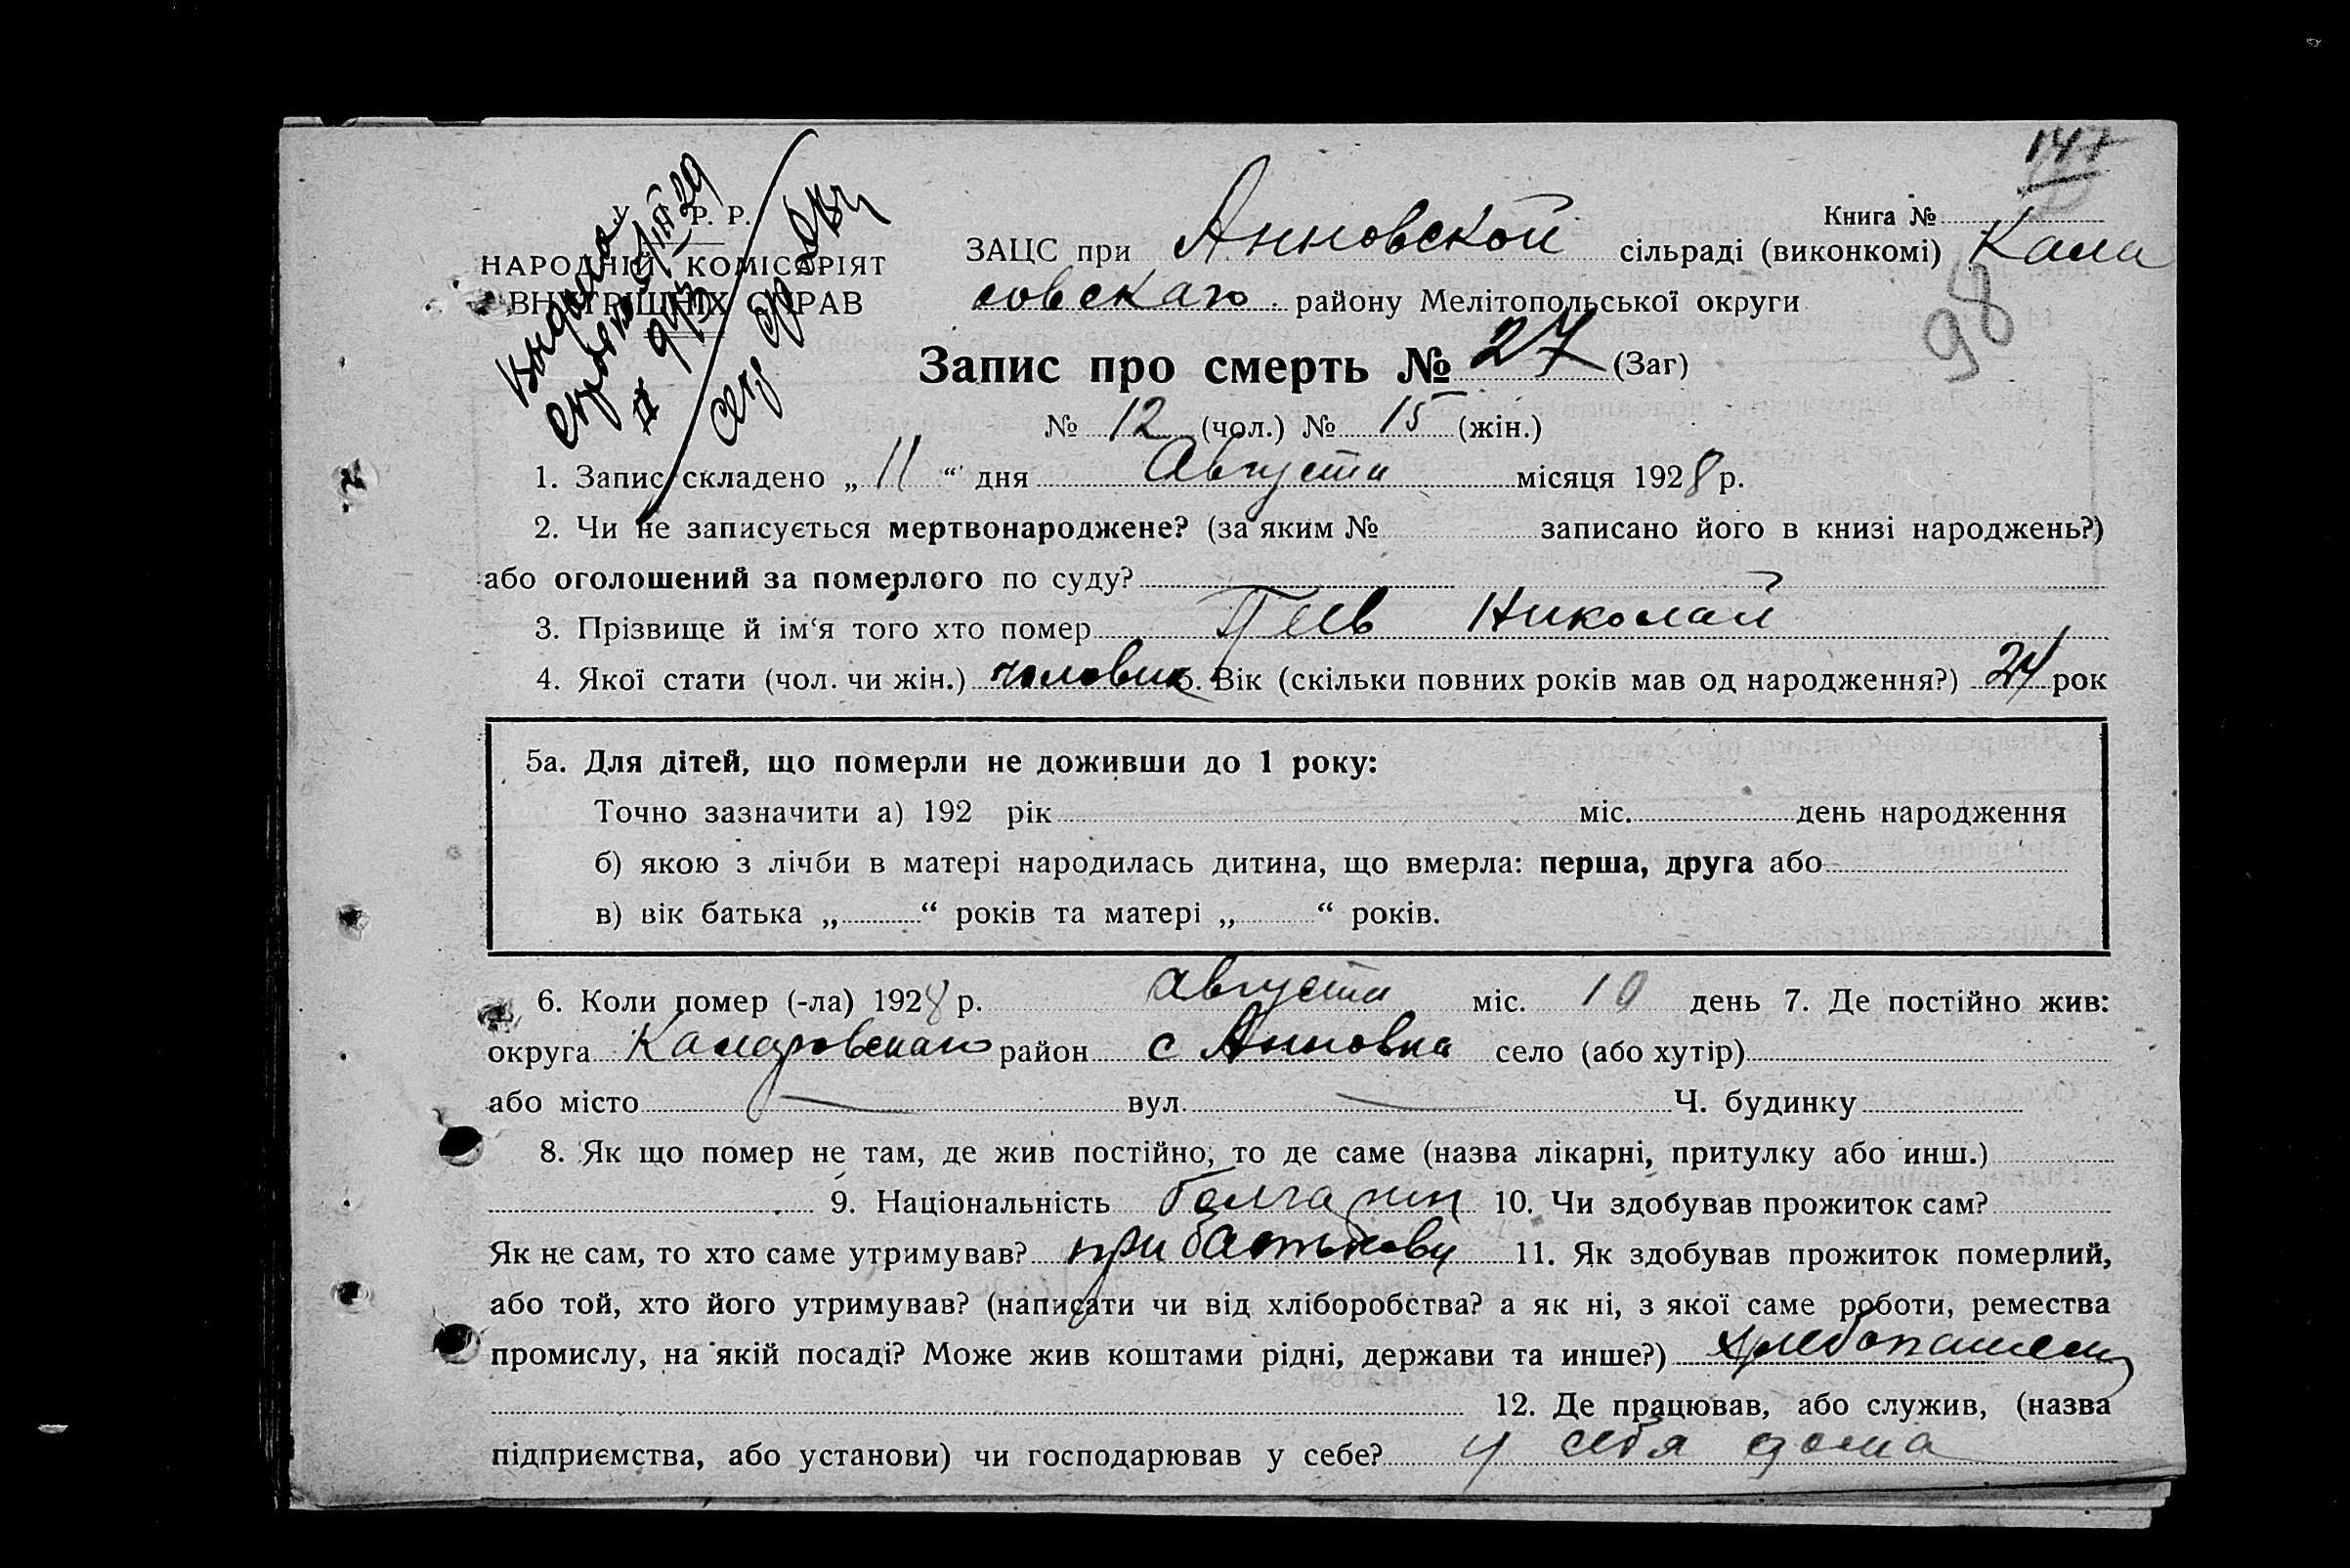 147
Книга №
У. Р. Р.
НАРОДНІЙ КОМІСАРІЯТ
ВНУТРІШНІХ СПРАВ
Выдана
ЗАЦС при Анновской сільраді (виконкомі)
района Мелітопольської округи
98
Запис про смерть № 27 (Заг)
№ 12 (чол.) № 15 (жін.)
1. Запис складено „ 11 “ дня Августа місяця 1928 р.
2. Чи не записується мертвонароджене? (за яким № записано його в книзі народжень?)
або оголошений за померлого по суду?
3. Прізвище й ім‘я того хто помер Николай
4. Якої стати (чол. чи жін.) чоловик 5. Вік (скільки повних років мав од народження?) 24 рок
5а. Для дітей, що померли не доживши до 1 року:
Точно зазначити а) 192 рік міс. день народження
б) якою з лічби в матері народилась дитина, що вмерла: перша, друга або
в) вік батька „ “ років та матері „ “ років.
6. Коли помер (-ла) 1928 р. августа міс. 10 день 7. Де постійно жив:
округа район с Анновка село (або хутір)
або місто вул. Ч. будинку
8. Як що помер не там, де жив постійно, то де саме (назва лікарні, притулку або инш.)
9. Національність болгарин 10. Чи здобував прожиток сам?
Як не сам, то хто саме утримував? при батькову 11. Як здобував прожиток померлий,
або той, хто його утримував? (написати чи від хліборобства? а як ні, з якої саме роботи, ремества
промислу, на якій посаді? Може жив коштами рідні, держави та инше?) хлебопашец
12. Де працював, або служив, (назва
підприємства, або установи) чи господарював у себе? у себя дома